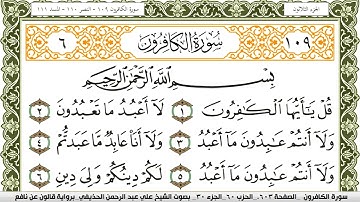 الجزء الثلاثون
سورة الكافرون ١٠٩ - النصر ١١٠ - المسد ١١١
١٠٩
سُورَةُ الْكَافِرُونَ
٦
بِسْمِ اللَّهِ الرَّحْمَٰنِ الرَّحِيمِ
قُلْ يَٰأَيُّهَا الْكَٰفِرُونَ ١ لَا أَعْبُدُ مَا تَعْبُدُونَ ٢
وَلَا أَنتُمْ عَٰبِدُونَ مَا أَعْبُدُ ٣ وَلَا أَنَا عَابِدٌ مَا عَبَدتُّمْ ٤
وَلَا أَنتُمْ عَٰبِدُونَ مَا أَعْبُدُ ٥ لَكُمْ دِينُكُمْ وَلِيَ دِينِ ٦
سورة الكافرون _ الصفحة ٦٠٣_ الحزب ٦٠_ الجزء ٣٠ _ بصوت الشيخ علي عبد الرحمن الحذيفي _ برواية قالون عن نافع